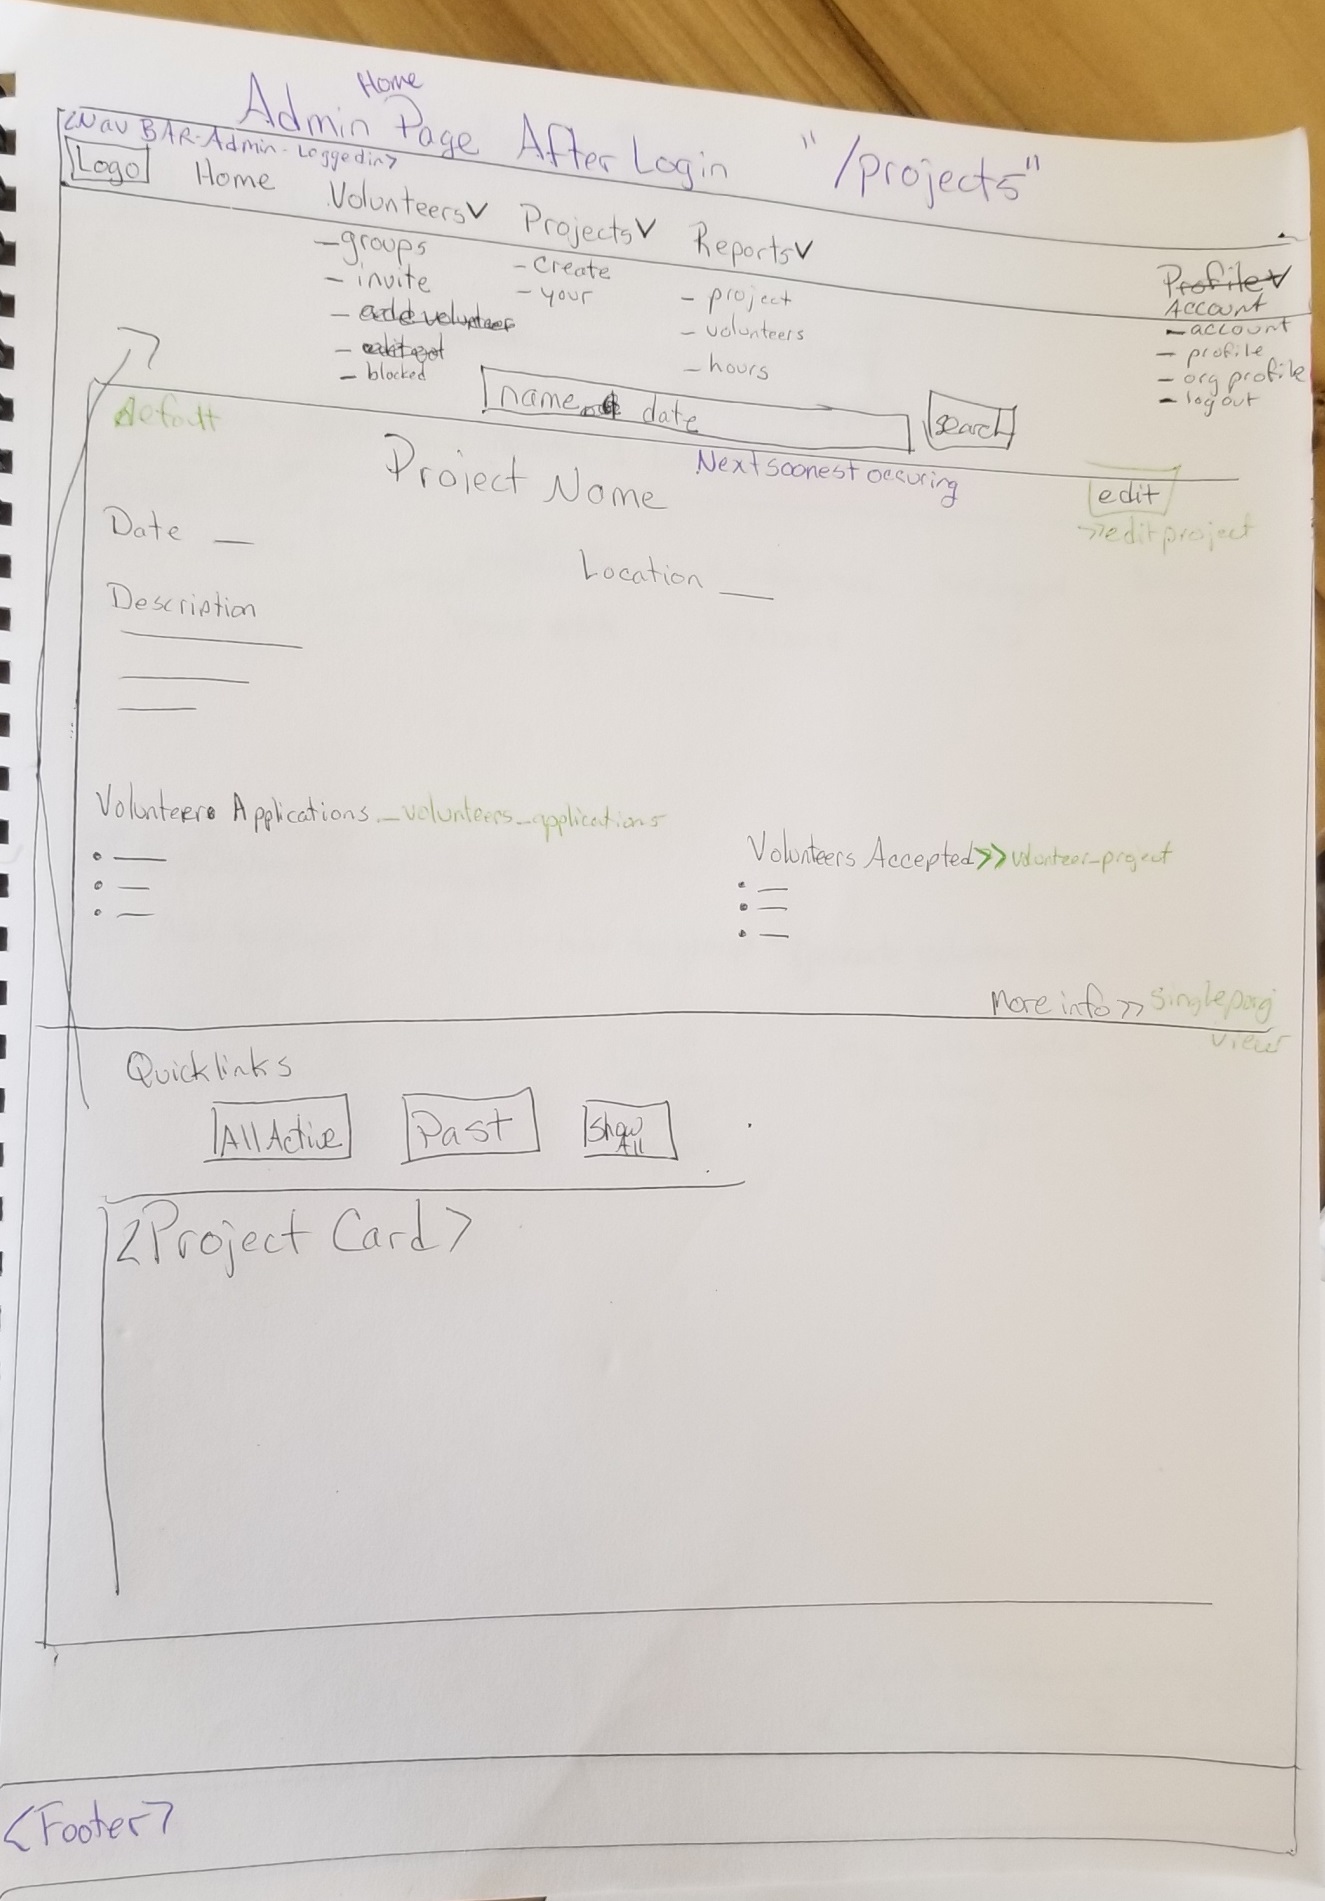 Home
Admin Page After Login "/projects"
<Nav BAR-Admin-Loggedin>
Logo Home Volunteers∨ Projects∨ Reports∨
Profile∨
Account
- groups
- invite
- add volunteer
- blocked
- Create
- your
- project
- volunteers
- hours
- account
- profile
- org profile
- logout
name date search
default
Project Name
Next soonest occuring
edit
>>editproject
Date __
Location __
Description
Volunteers Applications _volunteers_applications
Volunteers Accepted >> volunteer_project
More info >>
view
Quicklinks
All Active Past Show All
<Project Card>
<Footer>